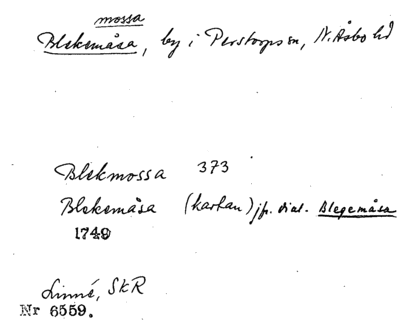 mossa
Blekemåsa, by i Perstorps sn, N. Åsbo hd
Blekmossa 373
Blekemåsa (kartan) jfr. dial. Blegemåsa
1749
Linné, SkR
Nr 6559.